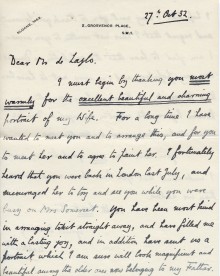 5, GROSVENOR PLACE,
S.W.1.
27th Oct 32.
Dear Mr de Laszlo.
I must begin by thanking you most
warmly for the excellent beautiful and charming
portrait of my Wife. For a long time I have
wanted to meet you and to arrange this, and for you
to meet her and to agree to paint her. I fortunately
heard that you were back in London last July, and
encouraged her to try and see you while you were
busy on Mrs
You have been most kind
in arranging to start straight away, and have filled me
with a lasting joy, and in addition have sent us a
portrait which I am sure will look magnificent and
beautiful among the older ones now belonging to my Father.